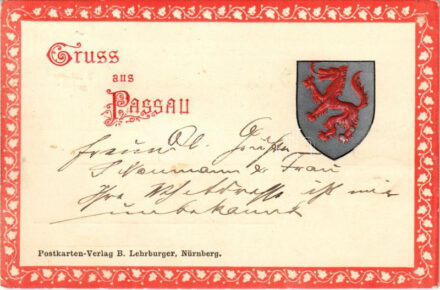 Gruss
aus
Passau
freundl. Grüße
S Naumann & Frau
Ihre ist mir
unbekannt
Postkarten-Verlag B. Lehrburger, Nürnberg.